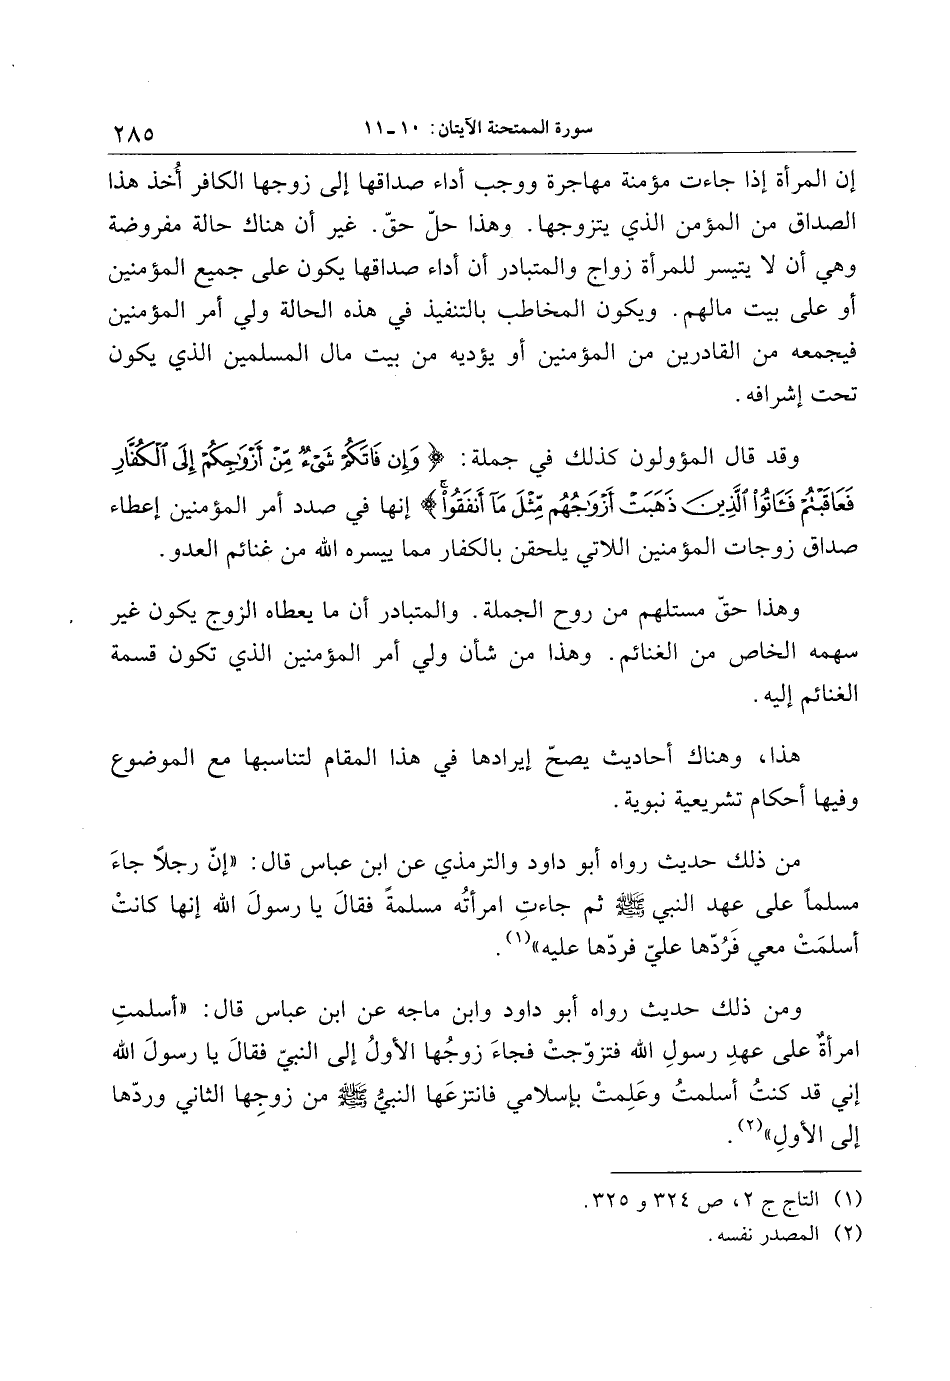 سورة الممتحنة الآيتان: ١٠ ـ ١١
٢٨٥
إن المرأة إذا جاءت مؤمنة مهاجرة ووجب أداء صداقها إلى زوجها الكافر أُخذ هذا
الصداق من المؤمن الذي يتزوجها. وهذا حلّ حقّ. غير أن هناك حالة مفروضة
وهي أن لا يتيسر للمرأة زواج والمتبادر أن أداء صداقها يكون على جميع المؤمنين
أو على بيت مالهم. ويكون المخاطب بالتنفيذ في هذه الحالة ولي أمر المؤمنين
فيجمعه من القادرين من المؤمنين أو يؤديه من بيت مال المسلمين الذي يكون
تحت إشرافه.
وقد قال المؤولون كذلك في جملة: ﴿وَإِن فَاتَكُمْ شَىْءٌ مِّنْ أَزْوَٰجِكُمْ إِلَى ٱلْكُفَّارِ
فَعَاقَبْتُمْ فَـَٔاتُوا۟ ٱلَّذِينَ ذَهَبَتْ أَزْوَٰجُهُم مِّثْلَ مَآ أَنفَقُوا۟ۚ﴾ إنها في صدد أمر المؤمنين إعطاء
صداق زوجات المؤمنين اللاتي يلحقن بالكفار مما ييسره الله من غنائم العدو.
وهذا حقّ مستلهم من روح الجملة. والمتبادر أن ما يعطاه الزوج يكون غير
سهمه الخاص من الغنائم. وهذا من شأن ولي أمر المؤمنين الذي تكون قسمة
الغنائم إليه.
هذا، وهناك أحاديث يصحّ إيرادها في هذا المقام لتناسبها مع الموضوع
وفيها أحكام تشريعية نبوية.
من ذلك حديث رواه أبو داود والترمذي عن ابن عباس قال: «إنّ رجلاً جاءَ
مسلماً على عهد النبي ﷺ ثم جاءتِ امرأتُه مسلمةً فقالَ يا رسولَ الله إنها كانتْ
أسلمَتْ معي فَرُدّها عليّ فردّها عليه»(١).
ومن ذلك حديث رواه أبو داود وابن ماجه عن ابن عباس قال: «أسلمتِ
امرأةٌ على عهدِ رسولِ الله فتزوّجتْ فجاءَ زوجُها الأولُ إلى النبيّ فقالَ يا رسولَ الله
إني قد كنتُ أسلمتُ وعَلِمتْ بإسلامي فانتزعَها النبيُّ ﷺ من زوجِها الثاني وردّها
إلى الأولِ»(٢).
(١) التاج ج ٢، ص ٣٢٤ و ٣٢٥.
(٢) المصدر نفسه.